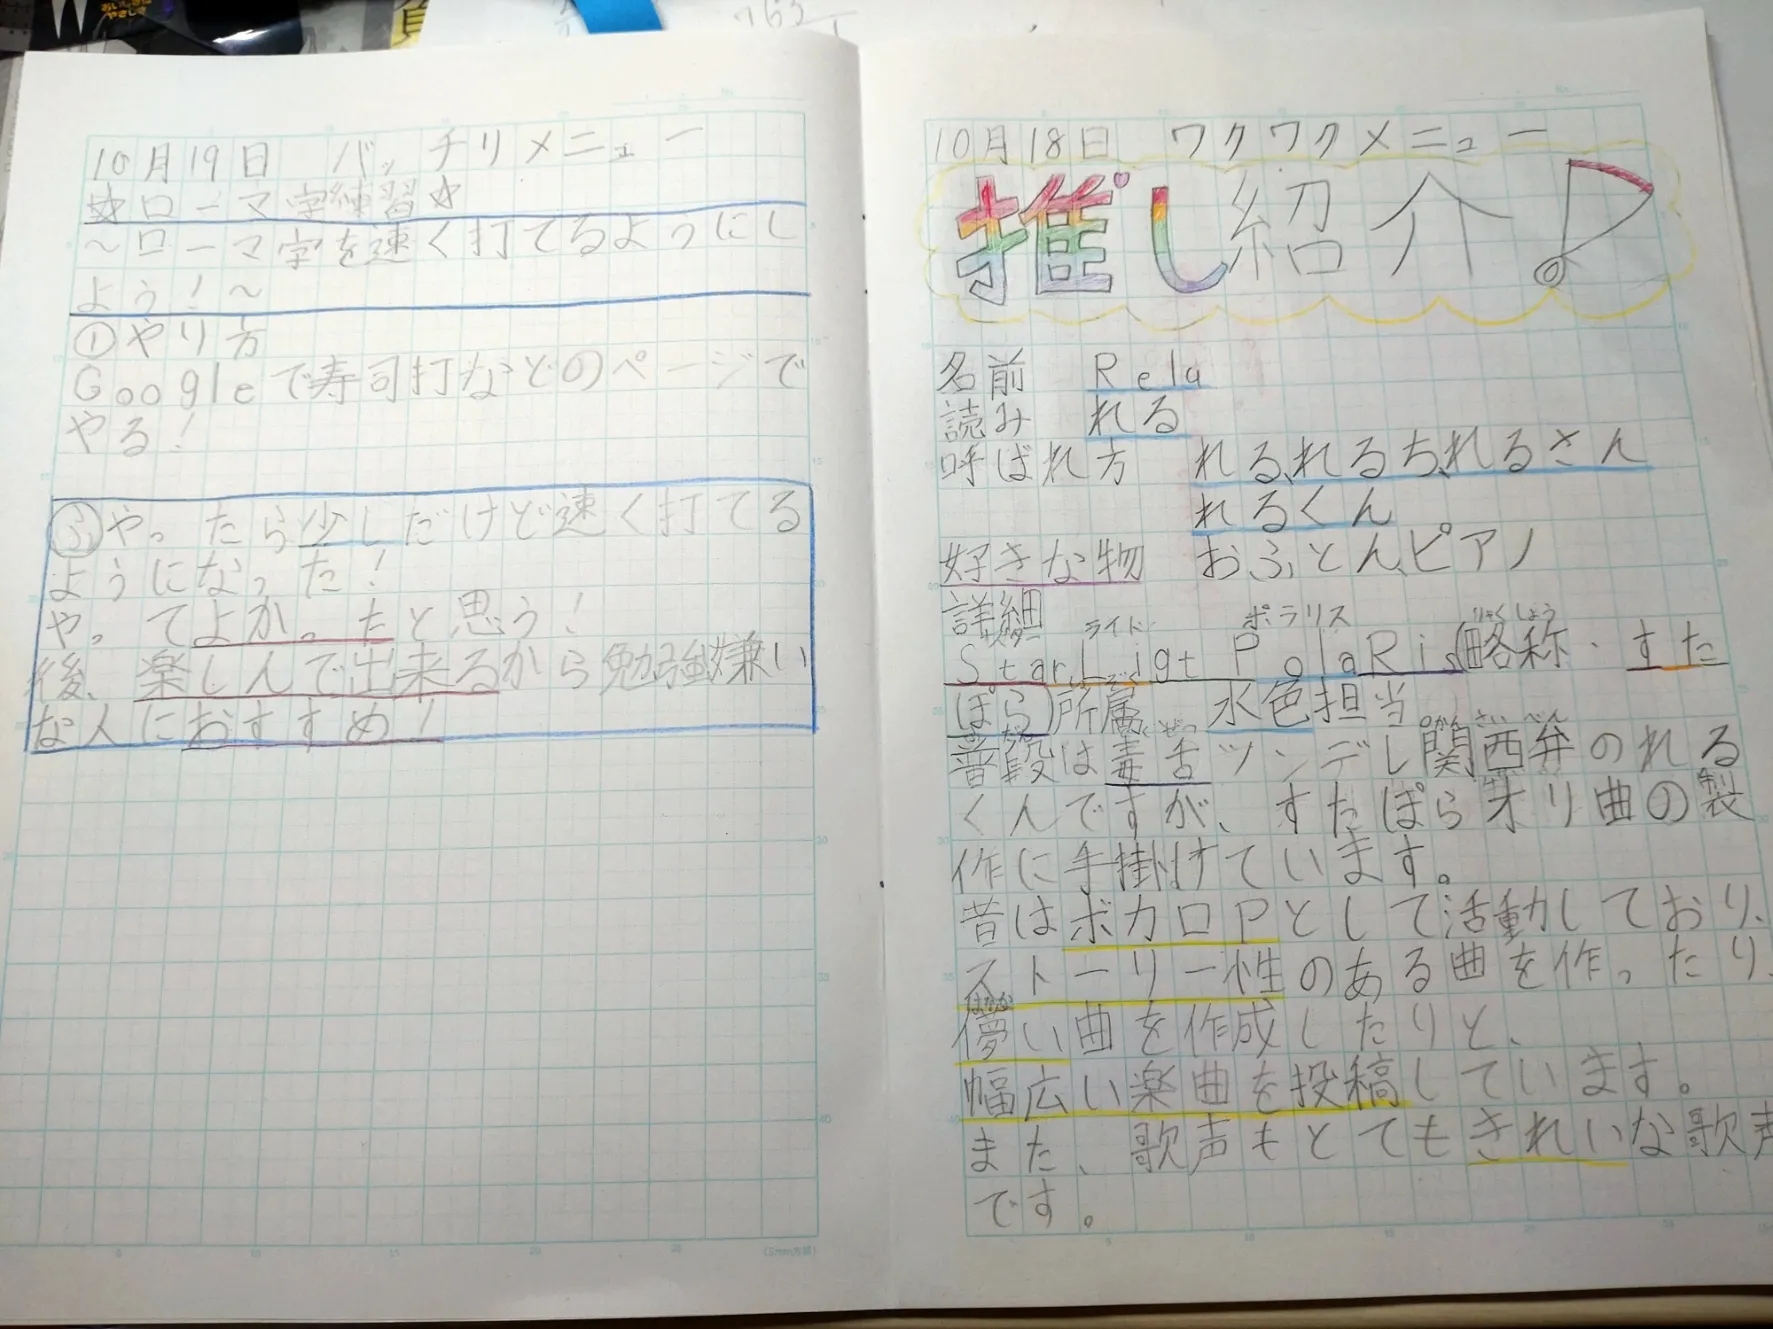 10月19日 バッチリメニュー
☆ローマ字練習☆
~ローマ字を速く打てるようにし
よう!~
①やり方
Googleで寿司打などのページで
やる!
ふやったら少しだけど速く打てる
ようになった!
やってよかったと思う!
後、楽しんで出来るから勉強嫌い
な人におすすめ!
10月18日 ワクワクメニュー
推し紹介!
名前 Rela
読み れる
呼ばれ方 れる、れるち、れるさん
れるくん
好きな物 おふとん、ピアノ
詳細
ライト ポラリス りゃくしょう
StarLigt PolaRis(略称・すた
ぽら)所属 水色担当
どくぜつ かんさいべん
普段は毒舌ツンデレ関西弁のれる
くんですが、すたぽらオリ曲の製
作に手掛けています。
昔はボカロPとして活動しており、
ストーリー性のある曲を作ったり、
はかな
儚い曲を作成したりと、
幅広い楽曲を投稿しています。
また、歌声もとてもきれいな歌声
です。
(5mm方眼)